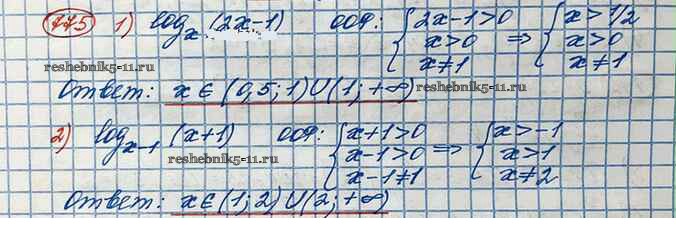 775 1) logₓ (2x-1) ООФ: { 2x-1>0 ⇒ { x>1/2
x>0 x>0
x≠1 x≠1
reshebnik5-11.ru
Ответ: x∈(0,5;1)∪(1;+∞)
reshebnik5-11.ru
2) logₓ₋₁ (x+1) ООФ: { x+1>0 ⇒ { x>-1
x-1>0 x>1
x-1≠1 x≠2
reshebnik5-11.ru
Ответ: x∈(1;2)∪(2;+∞)